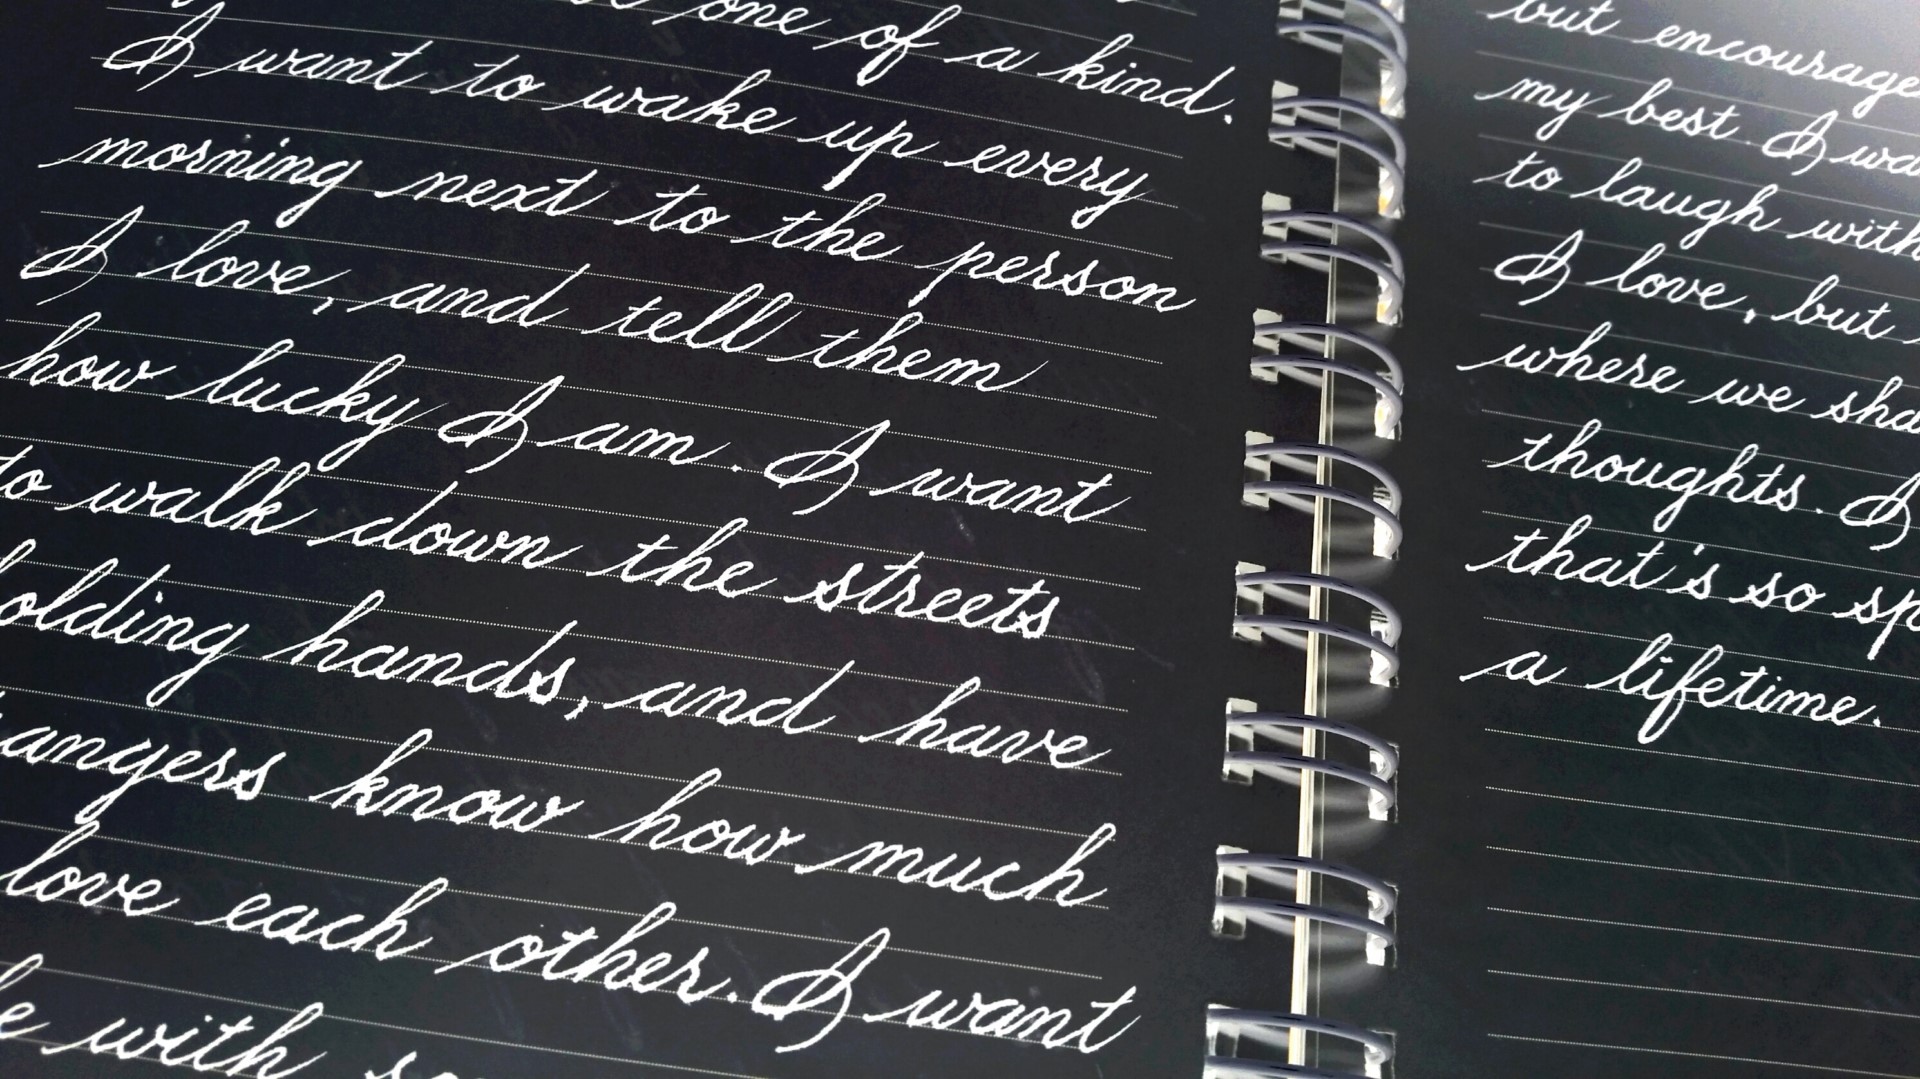 one of a kind.
I want to wake up every
morning next to the person
I love, and tell them
how lucky I am. I want
to walk down the streets
olding hands, and have
angers know how much
love each other. I want
with
but encourage
my best. I wa
to laugh with
I love, but
where we sha
thoughts. I
that's so sp
a lifetime.